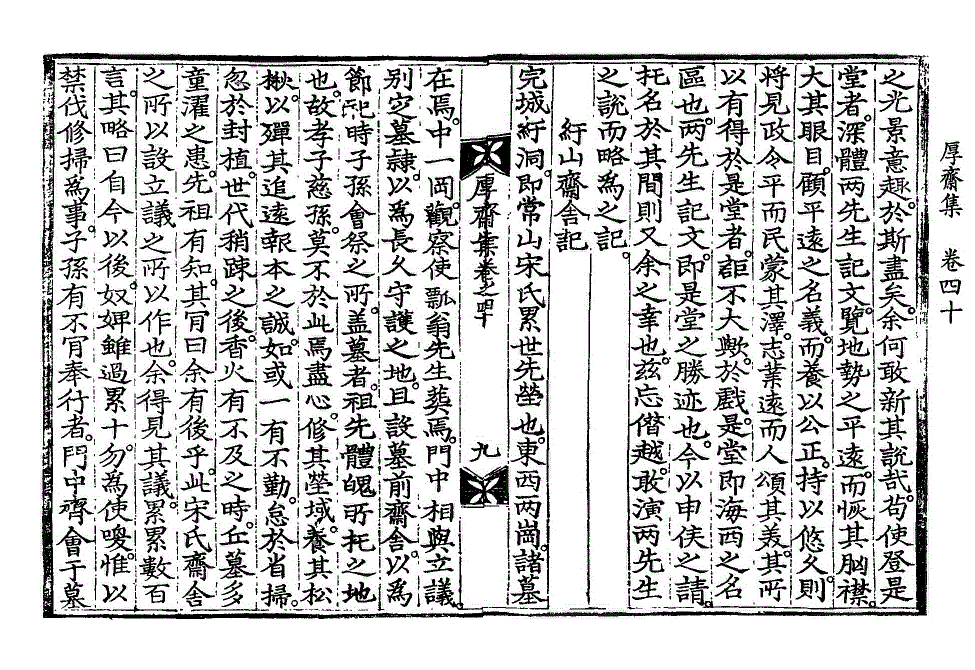 厚齋集　卷四十
之光景意趣。於斯盡矣。余何敢新其說哉。苟使登是
堂者。深體两先生記文。覽地勢之平遠。而恢其胸襟。
大其眼目。顧平遠之名義。而養以公正。持以悠久。則
將見政令平而民蒙其澤。志業遠而人頌其美。其所
以有得於是堂者。詎不大歟。於戱。是堂即海西之名
區也。两先生記文。即是堂之勝迹也。今以申侯之請。
托名於其間。則又余之幸也。玆忘僭越。敢演两先生
之說而略爲之記。
紆山齋舍記
完城紆洞。即常山宋氏累世先塋也。東西两崗。諸墓
厚齋集卷之四十　九
在焉。中一岡。觀察使瓢翁先生葬焉。門中相與立議。
别定墓隷。以爲長久守護之地。且設墓前齋舍。以爲
節祀時子孫會祭之所。盖墓者。祖先體魄所托之地
也。故孝子慈孫。莫不於此焉盡心。修其塋域。養其松
楸。以殫其追遠報本之誠。如或一有不勤。怠於省掃。
忽於封植。世代稍踈之後。香火有不及之時。丘墓多
童濯之患。先祖有知。其肎曰余有後乎。此宋氏齋舍
之所以設立議之所以作也。余得見其議。累累數百
言。其略曰自今以後。奴婢雖過累十。勿爲使喚。惟以
禁伐修掃爲事。子孫有不肎奉行者。門中齊會于墓